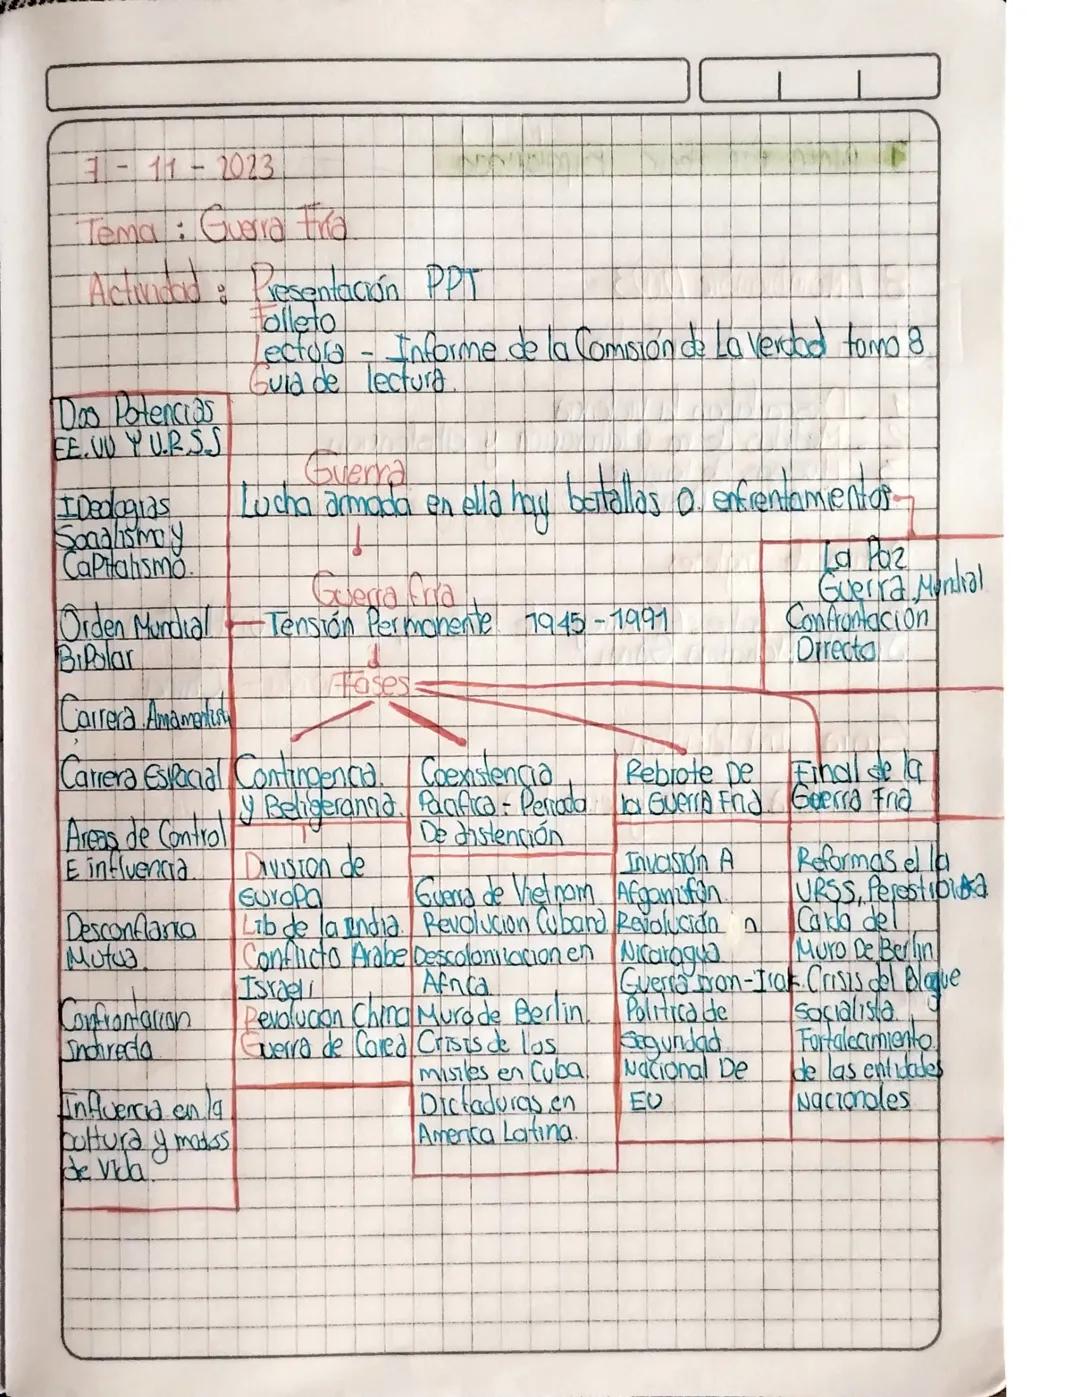 7 - 11 - 2023
Tema : Guerra Fría
Actividad : Presentación PPT
Folleto
Lectura - Informe de la Comisión de La Verdad tomo 8
Guia de lectura.
Dos Potencias
EE.UU Y U.R.S.S
IDeologias
Socialismo y
CaPitalismo.
Orden Mundial
BiPolar
Carrera Amamentista
Carrera Espacial
Areas de Control
E influencia.
Desconfianza
Mutua.
Confrontación
Indirecta
Influencia en la
cultura y modos
de vida.
Guerra
Lucha armada en ella hay batallas o enfrentamientos
La Paz
Guerra Mundial
Confrontación
Directa
Guerra fría
Tensión Permanente 1945-1991
Fases
Contingencia
y Beligerancia.
Division de
europa
Lib de la India.
Conflicto Arabe
Israeli
Revolucion China
Guerra de Corea
Coexistencia
Pacifica - Periodo
De distención
Guerra de Vietnam
Revolucion Cubana
Descolonizacion en
Africa
Muro de Berlin.
Crisis de los
misiles en Cuba
Dictaduras en
America Latina.
Rebrote De
la Guerra Fria
Invasión A
Afganistan.
Revolución n
Nicaragua
Guerra Iran-Irak
Politica de
Seguridad
Nacional De
EU
Final de la
Guerra Fria
Reformas el la
URSS, Perestroika
Caida del
Muro De Berlin
Crisis del Bloque
Socialista.
Fortalecimiento
de las entidades
Nacionales